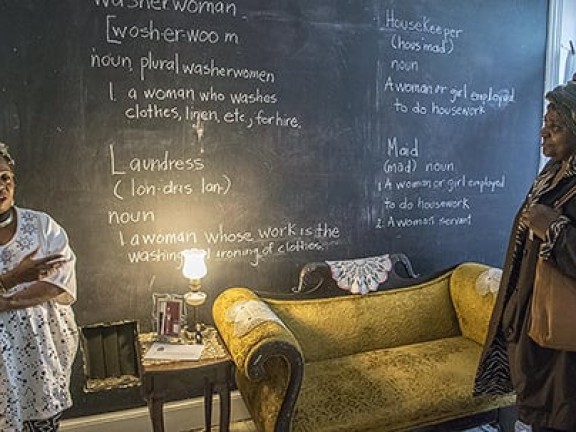 washerwoman
[wosh-er-woo m
noun, plural washerwomen
1. a woman who washes
clothes, linen, etc, for hire.
Laundress
(lon-dris lan)
noun
1 a woman whose work is the
washing and ironing of clothes.
1. Housekeeper
(hous'mad)
noun
A woman or girl employed
to do housework
Maid
(mad) noun
1. A woman or girl employed
to do housework
2. A woman servant